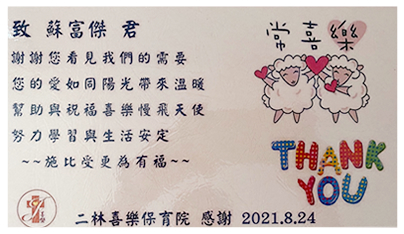 致 蘇富傑 君
常喜樂
謝謝您看見我們的需要
您的愛如同陽光帶來溫暖
幫助與祝福喜樂慢飛天使
努力學習與生活安定
~~施比受更為有福~~
THANK
YOU
二林喜樂保育院 感謝 2021.8.24